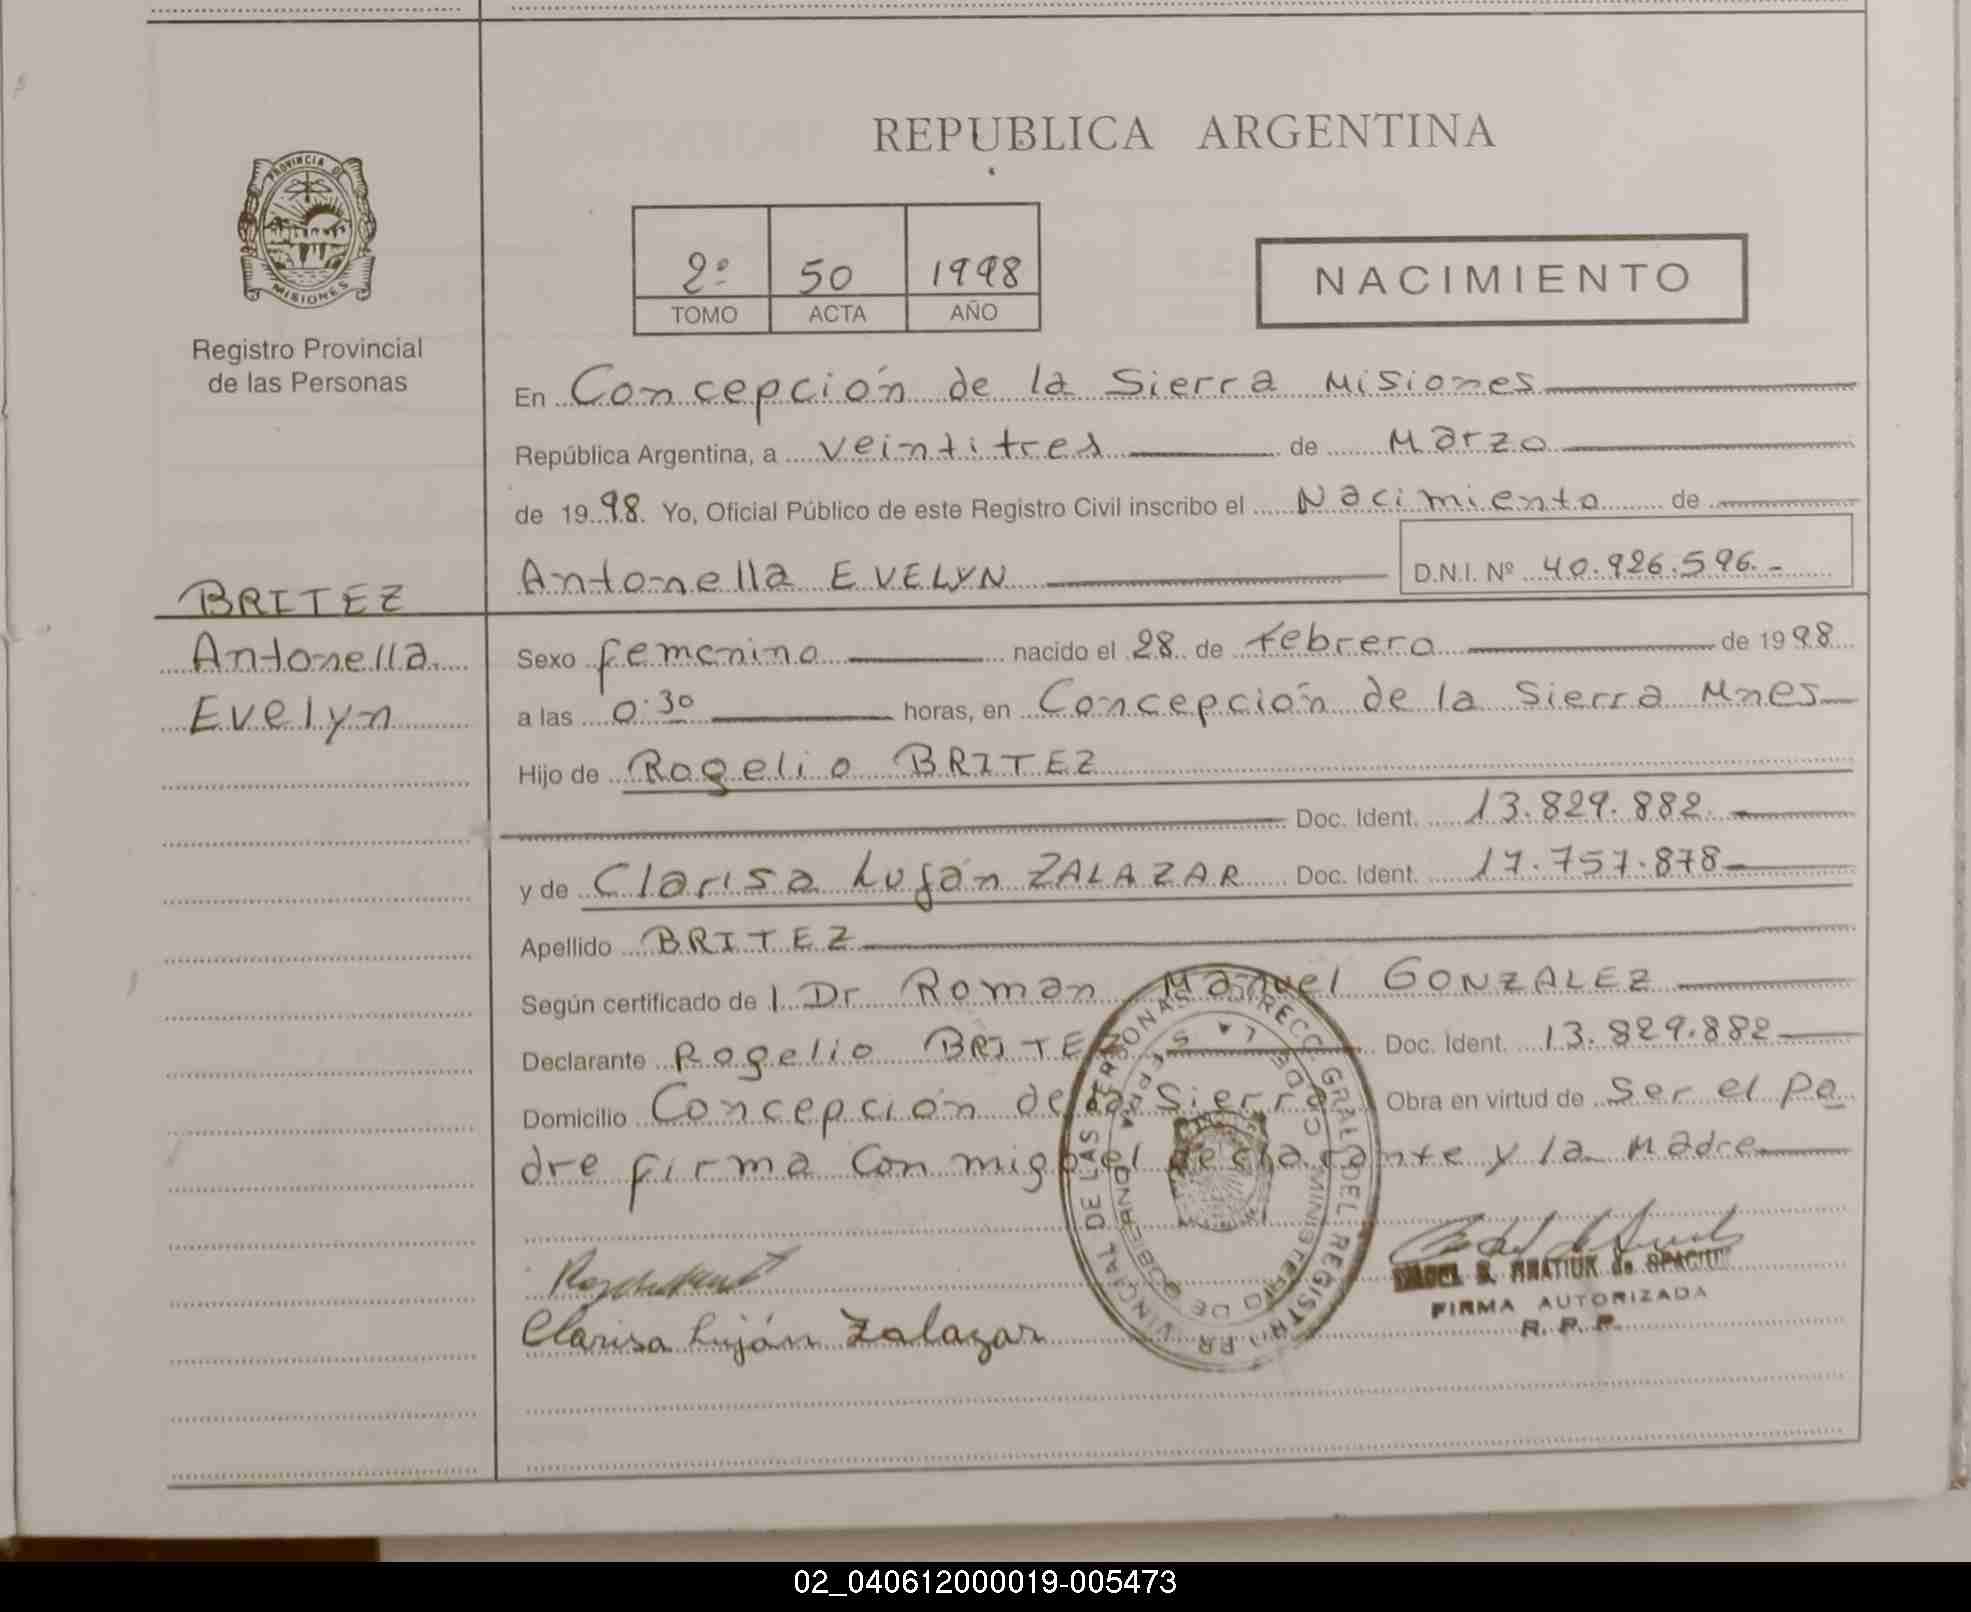 REPUBLICA ARGENTINA
PROVINCIA DE
MISIONES
Registro Provincial
de las Personas
2º 50 1998
TOMO ACTA AÑO
NACIMIENTO
En Concepción de la Sierra Misiones
República Argentina, a veintitres de Marzo
de 1998. Yo, Oficial Público de este Registro Civil inscribo el Nacimiento de
Antonella EVELYN D.N.I. Nº 40.926.596.-
BRITEZ
Antonella
Evelyn
Sexo femenino nacido el 28 de febrero de 1998
a las 0:30 horas, en Concepción de la Sierra Mnes
Hijo de Rogelio BRITEZ
Doc. Ident. 13.829.882.
y de Clarisa Luján ZALAZAR Doc. Ident. 17.757.878
Apellido BRITEZ
Según certificado de l Dr Roman Manuel GONZALEZ
Declarante Rogelio BRITEZ Doc. Ident. 13.829.882
Domicilio Concepción de la Sierra Obra en virtud de Ser el Pa
dre firma Con migo el declarante y la Madre
Clarisa Luján Zalazar
FIRMA AUTORIZADA
R. P. P.
02_040612000019-005473